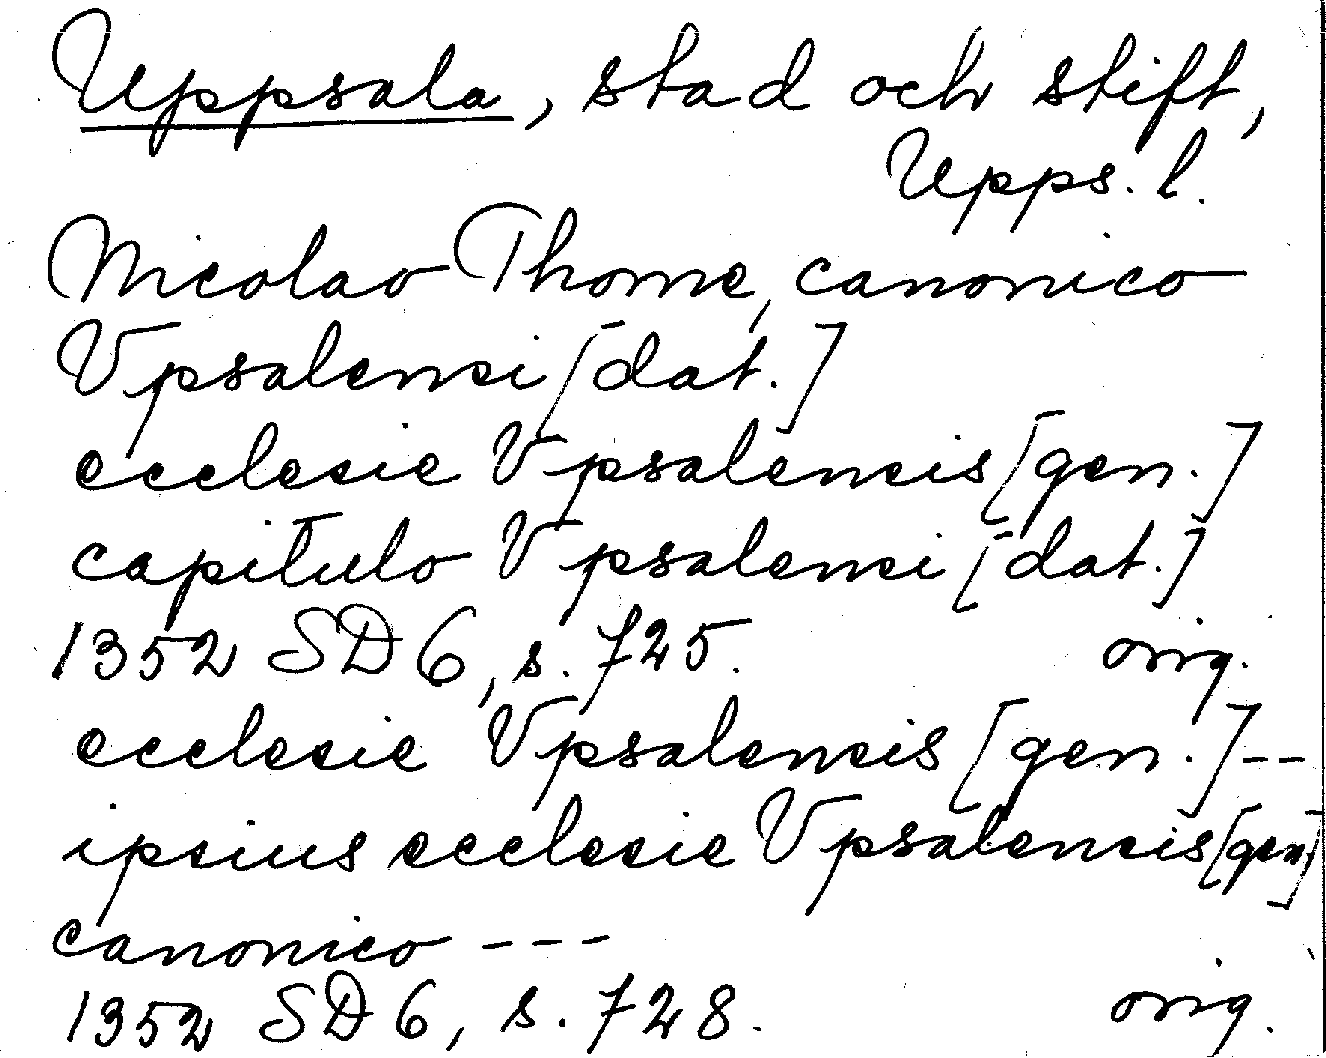 Uppsala, stad och stift,
Upps. l.
Nicolao Thome, canonico
Vpsalensi [dat.]
ecclesie Vpsalensis [gen.]
capitulo Vpsalensi [dat.]
1352 SD 6, s. 725. orig.
ecclesie Vpsalensis [gen.] --
ipsius ecclesie Vpsalensis [gen]
canonico ---
1352 SD 6, s. 728. orig.